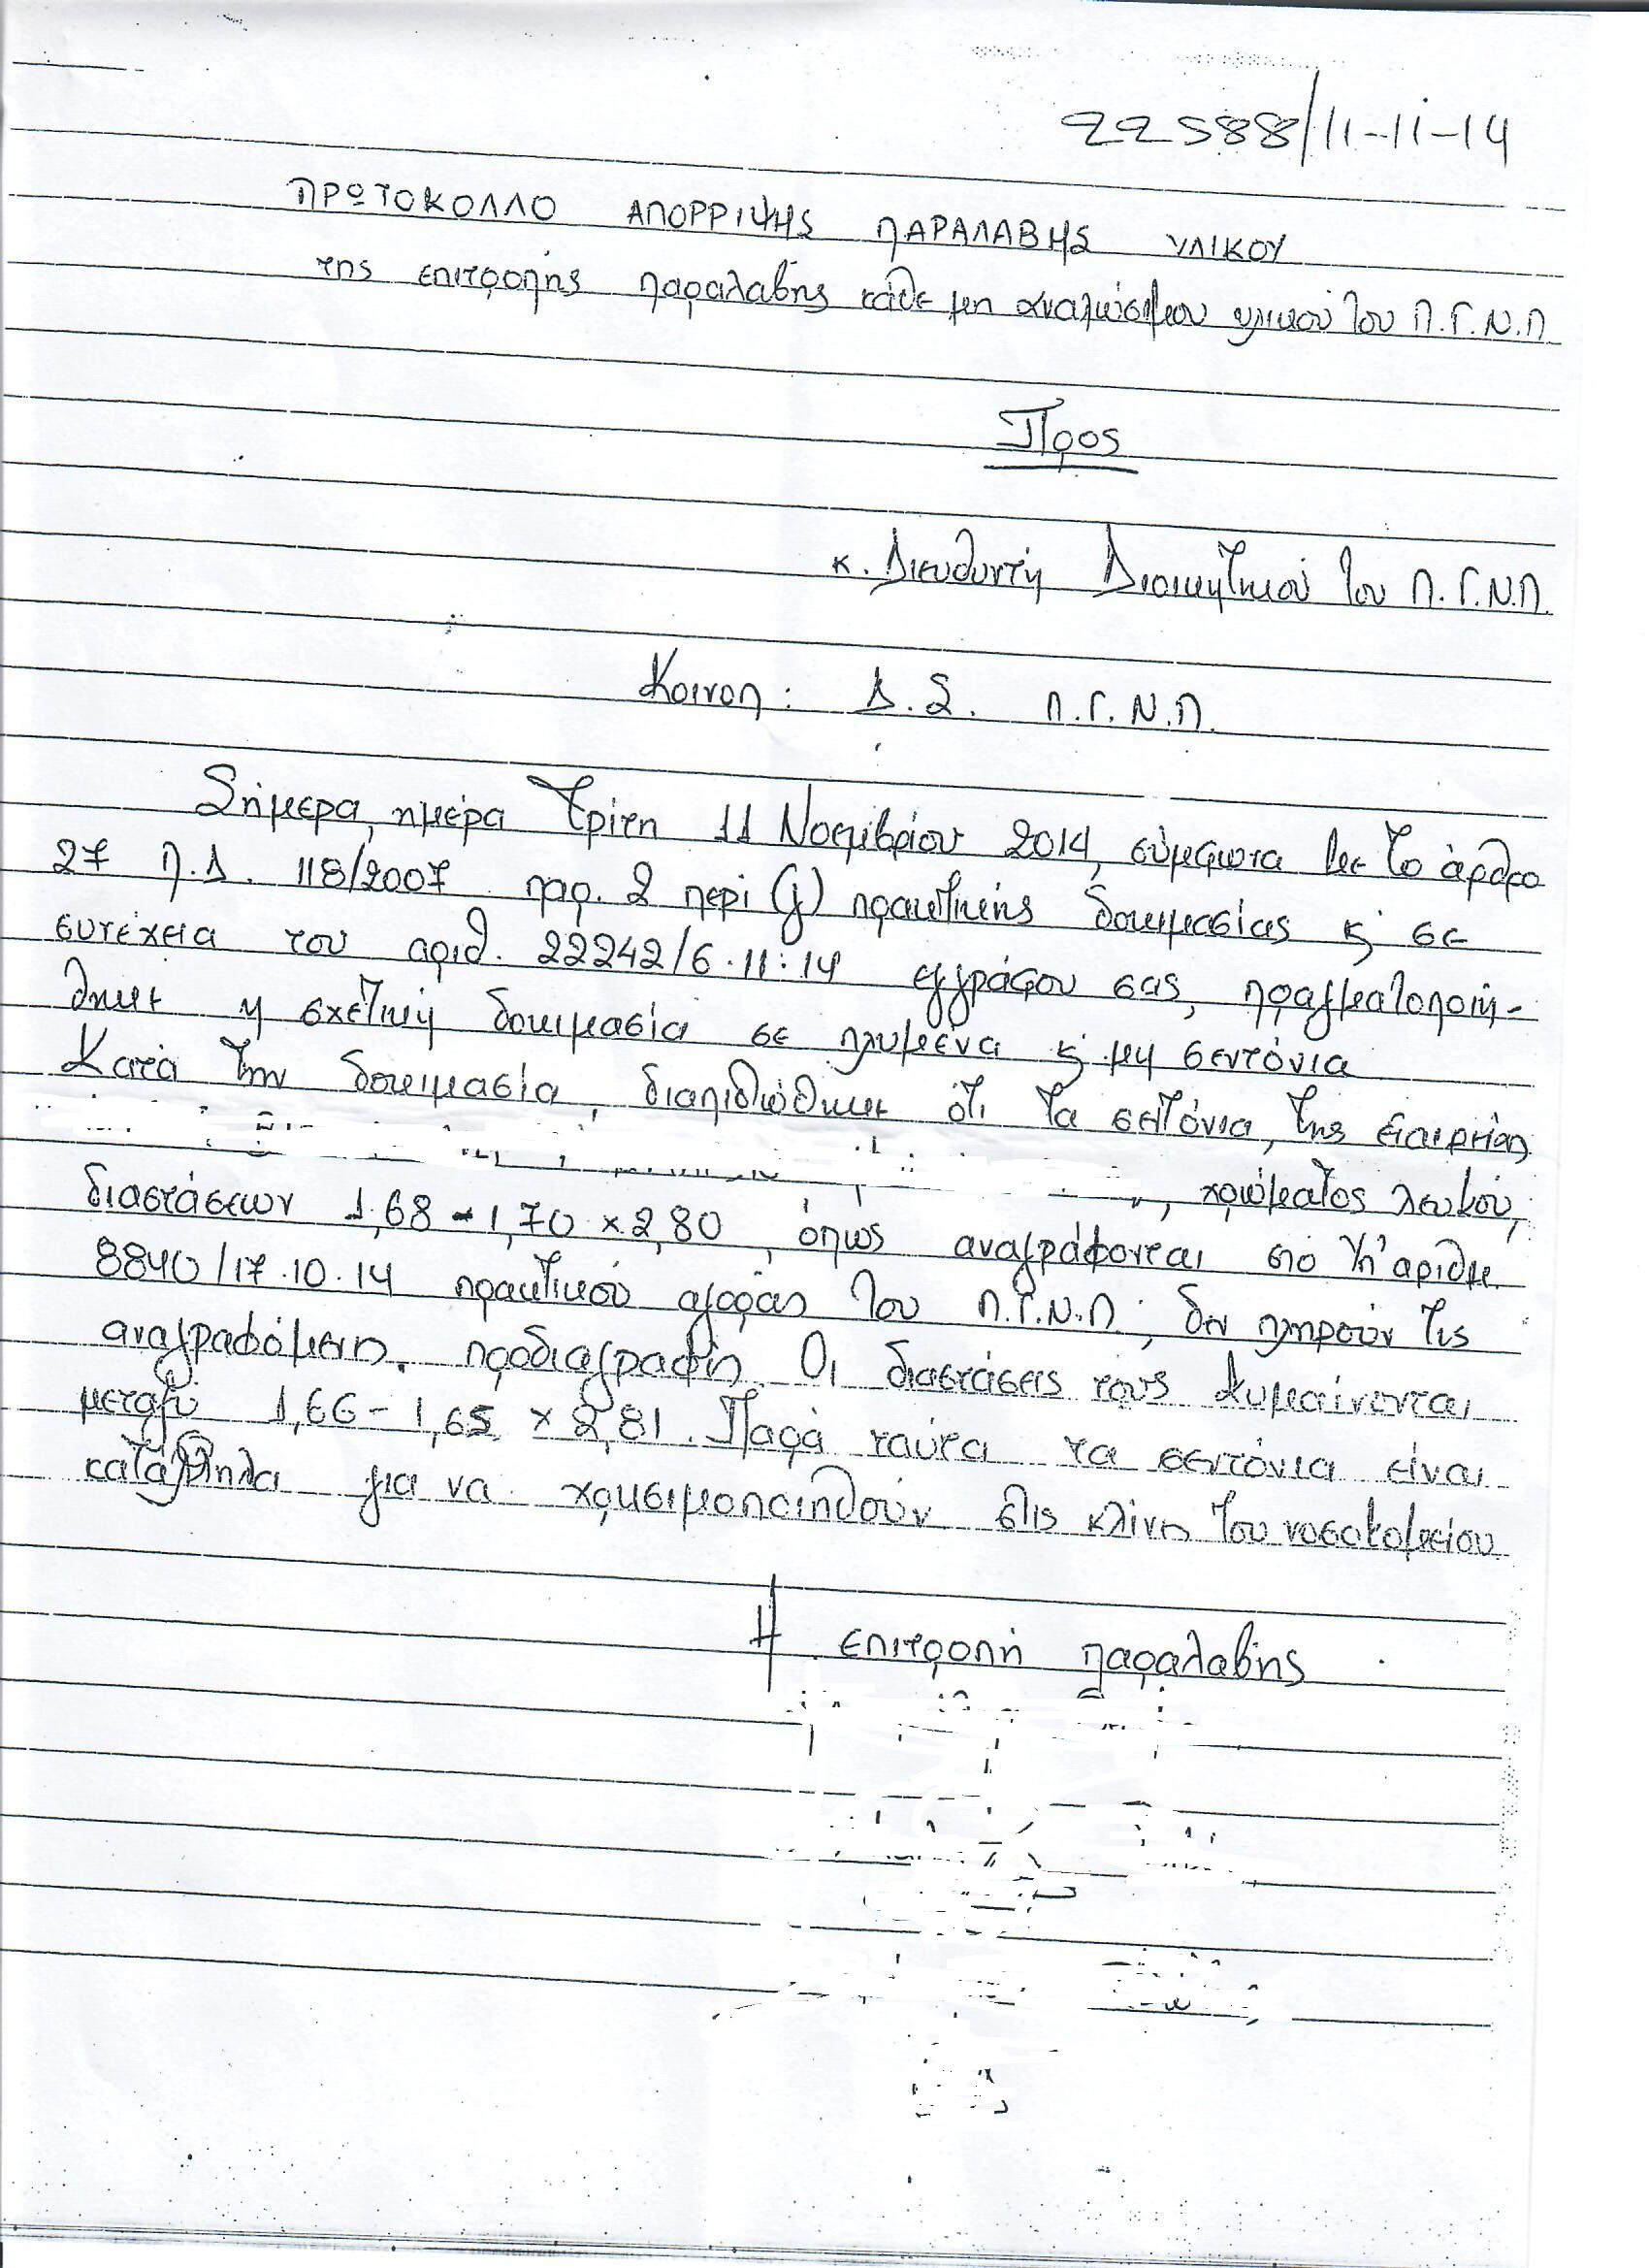 22588/11-11-14
ΠΡΩΤΟΚΟΛΛΟ ΑΠΟΡΡΙΨΗΣ ΠΑΡΑΛΑΒΗΣ ΥΛΙΚΟΥ
της επιτροπής παραλαβής κάθε μη αναλώσιμου υλικού του Π.Γ.Ν.Π
Προς
κ. Διευθυντή Διοικητικού του Π.Γ.Ν.Π.
Κοινοπ: Δ.Σ. Π.Γ.Ν.Π.
Σήμερα, ημέρα Τρίτη 11 Νοεμβρίου 2014, σύμφωνα με το άρθρο
27 Π.Δ. 118/2007 παρ. 2 περί (γ) πρακτικής δοκιμασίας κ' σε
συνέχεια του αριθ. 22242/6.11.14 εγγράφου σας, πραγματοποιή-
θηκε η σχετική δοκιμασία σε πλυμένα κ' μη σεντόνια
Κατά την δοκιμασία, διαπιστώθηκε ότι τα σεντόνια, της εταιρείας
", χρώματος λευκού,
διαστάσεων 1,68-1,70 x 2,80, όπως αναγράφονται στο υπ' αριθμ.
8840/17.10.14 πρακτικού αγοράς του Π.Γ.Ν.Π., δεν πληρούν τις
αναγραφόμενες προδιαγραφές. Οι διαστάσεις τους κυμαίνονται
μεταξύ 1,66-1,65 x 2,81. Παρά ταύτα τα σεντόνια είναι
κατάλληλα για να χρησιμοποιηθούν στις κλίνες του νοσοκομείου
Η επιτροπή παραλαβής